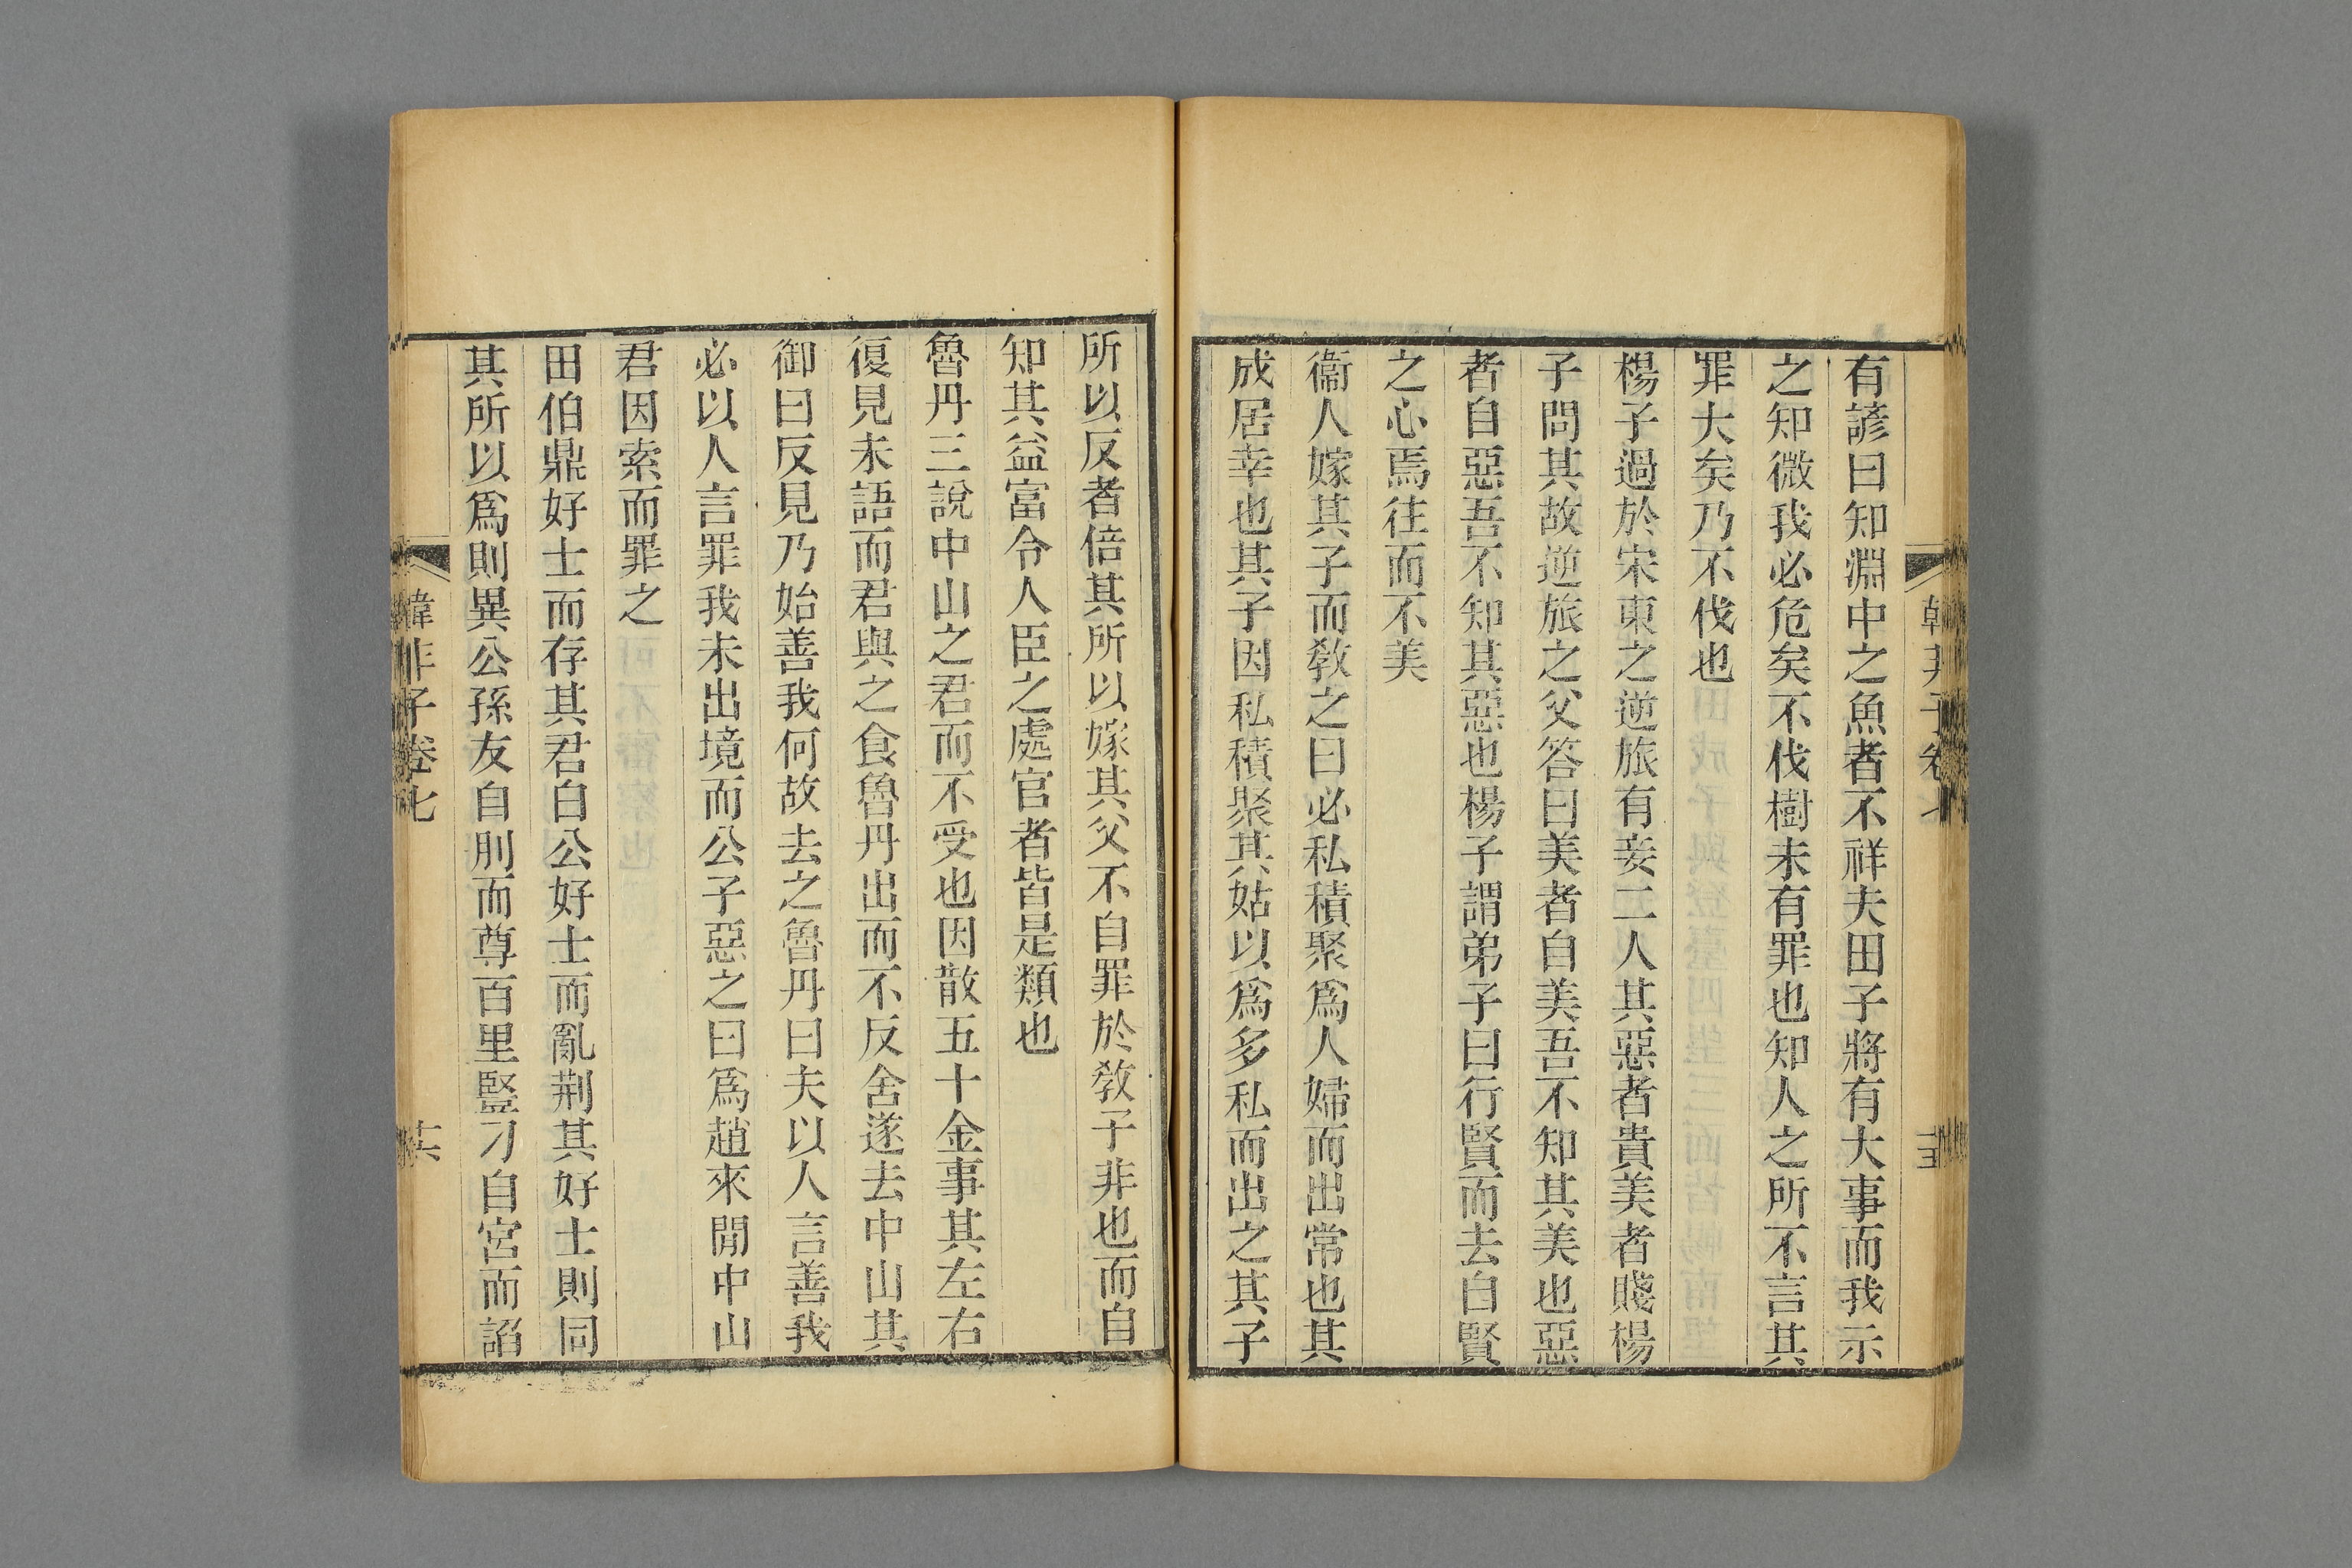 有諺曰知淵中之魚者不祥夫田子將有大事而我示
之知微我必危矣不伐樹未有罪也知人之所不言其
罪大矣乃不伐也
楊子過於宋東之逆旅有妾二人其惡者貴美者賤楊
子問其故逆旅之父答曰美者自美吾不知其美也惡
者自惡吾不知其惡也楊子謂弟子曰行賢而去自賢
之心焉往而不美
衞人嫁其子而敎之曰必私積聚爲人婦而出常也其
成居幸也其子因私積聚其姑以爲多私而出之其子
所以反者倍其所以嫁其父不自罪於敎子非也而自
知其益富令人臣之處官者皆是類也
魯丹三說中山之君而不受也因散五十金事其左右
復見未語而君與之食魯丹出而不反舍遂去中山其
御曰反見乃始善我何故去之魯丹曰夫以人言善我
必以人言罪我未出境而公子惡之曰爲趙來閒中山
君因索而罪之
田伯鼎好士而存其君白公好士而亂荆其好士則同
其所以爲則異公孫友自刖而尊百里豎刁自宮而諂
韓非子卷七